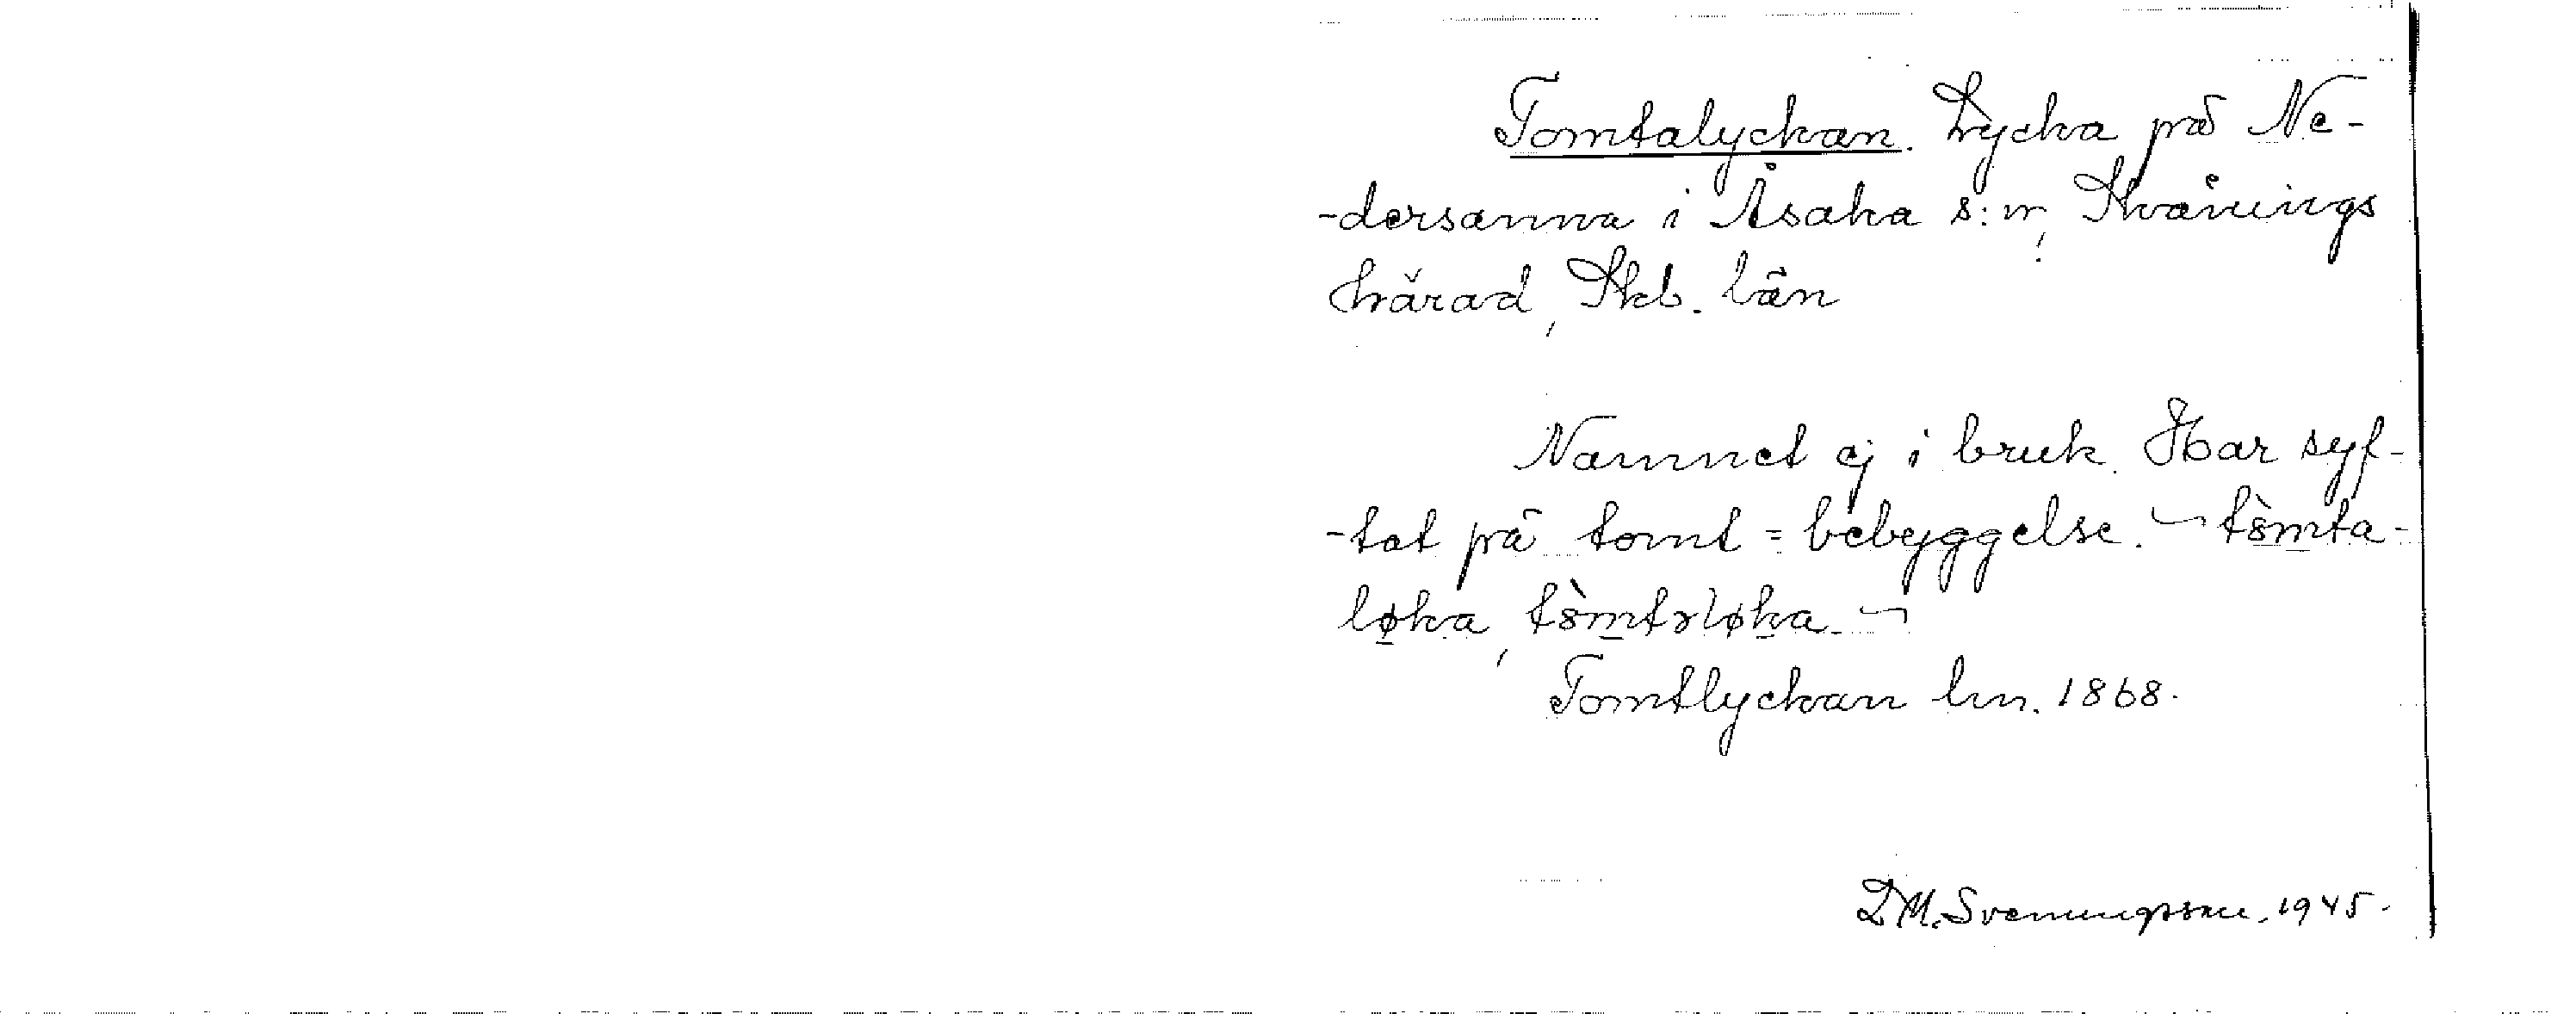 Tomtalyckan. Lycka på Ne-
-dersanna i Åsaka s:n, Skånings
härad, Skb. län
Namnet ej i bruk. Har syf-
-tat på tomt = bebyggelse. ¬ tòmta-
løka, tòmtəløka ¬
Tomtlyckan lm. 1868.
D.M. Svenungsson, 1945.